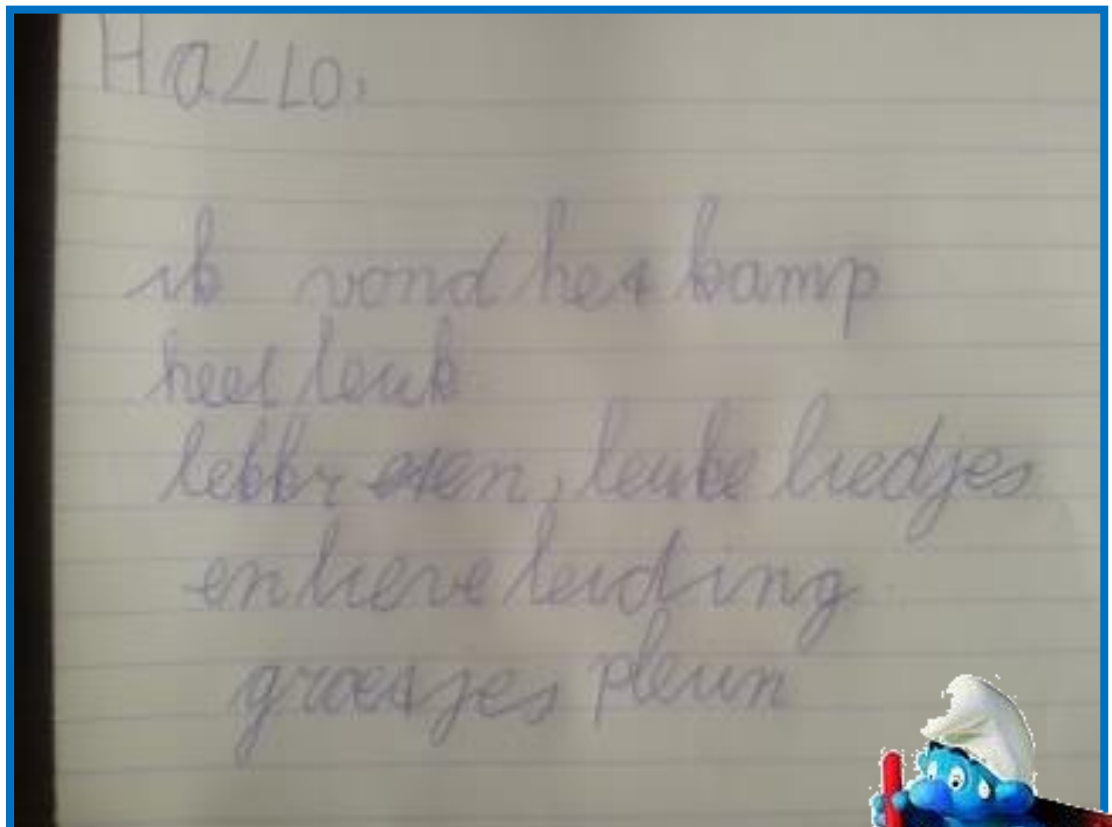 HALLO,
ik vond het kamp
heel leuk
lekkr eten, leuke liedjes
en lieve leiding
groetjes pleun